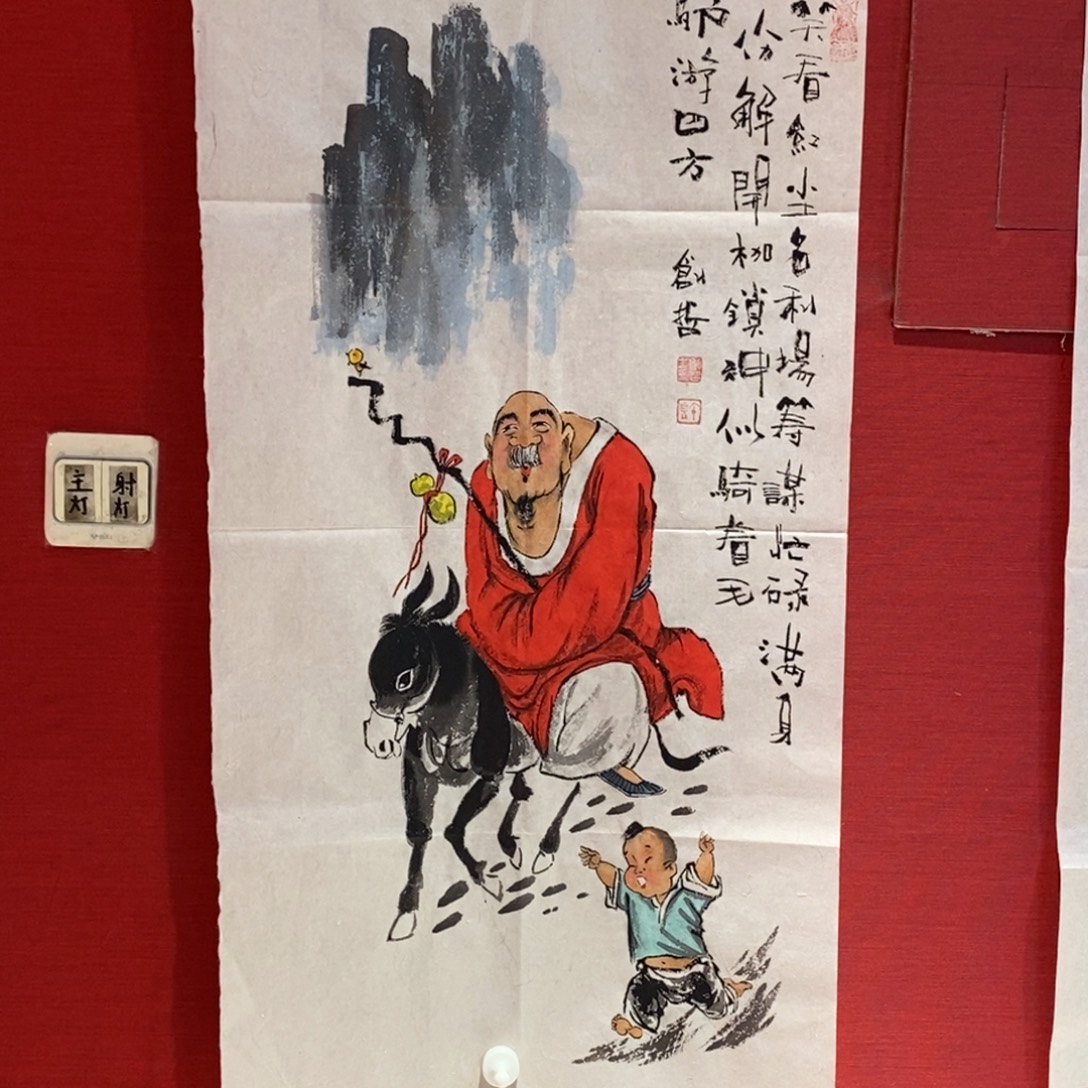 笑看紅尘名利場筹謀忙碌满身
伤解開枷鎖神似騎着毛
驴游四方
創哲
主灯
射灯